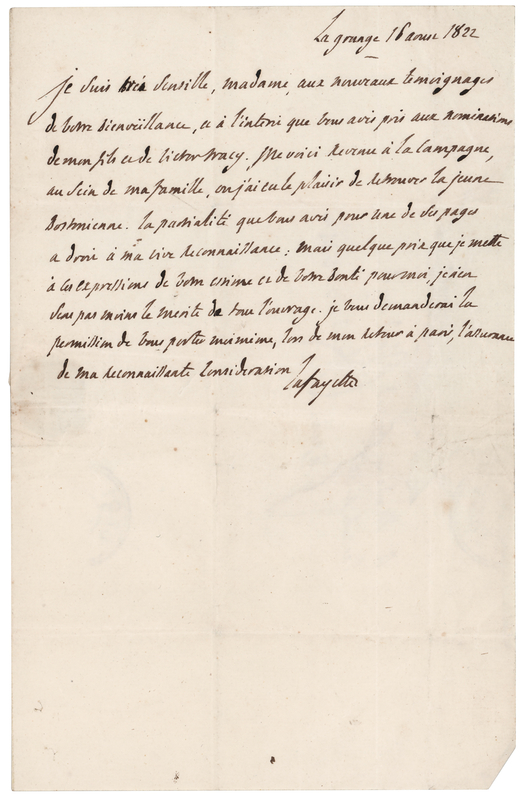 La grange 16 aoust 1822
je suis très sensible, madame, aux nouveaux temoignages
de votre bienveillance, et à l'interet que vous avés pris aux nominations
de mon fils et de victor tracy. Me voici revenu à la Campagne,
au sein de ma famille, où j'ai eu le plaisir de retrouver la jeune
bostonienne. la partialité que vous avés pour une de ses pages
a droit à ma vive reconnaissance; mais quelque prix que je mette
à ces expressions de votre estime et de votre bonté pour moi, je n'en
sens pas moins le merite de tout l'ouvrage. je vous demanderai la
permission de vous porter moi meme, lors de mon retour à paris, l'assurance
de ma reconnaissante Consideration
Lafayette